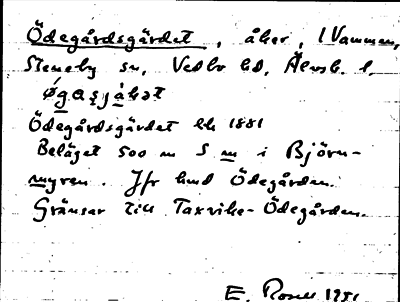 Ödegårdsgärdet, åker, 1 Vammen,
Steneby sn, Vedbo hd, Älvsb. l.
Ödegårdsgärdet lk 1881
Beläget 500 m S m i Björn-
myren. Jfr hmd Ödegården.
Gränsar till Taxviks-Ödegården.
E. Rosell 1951